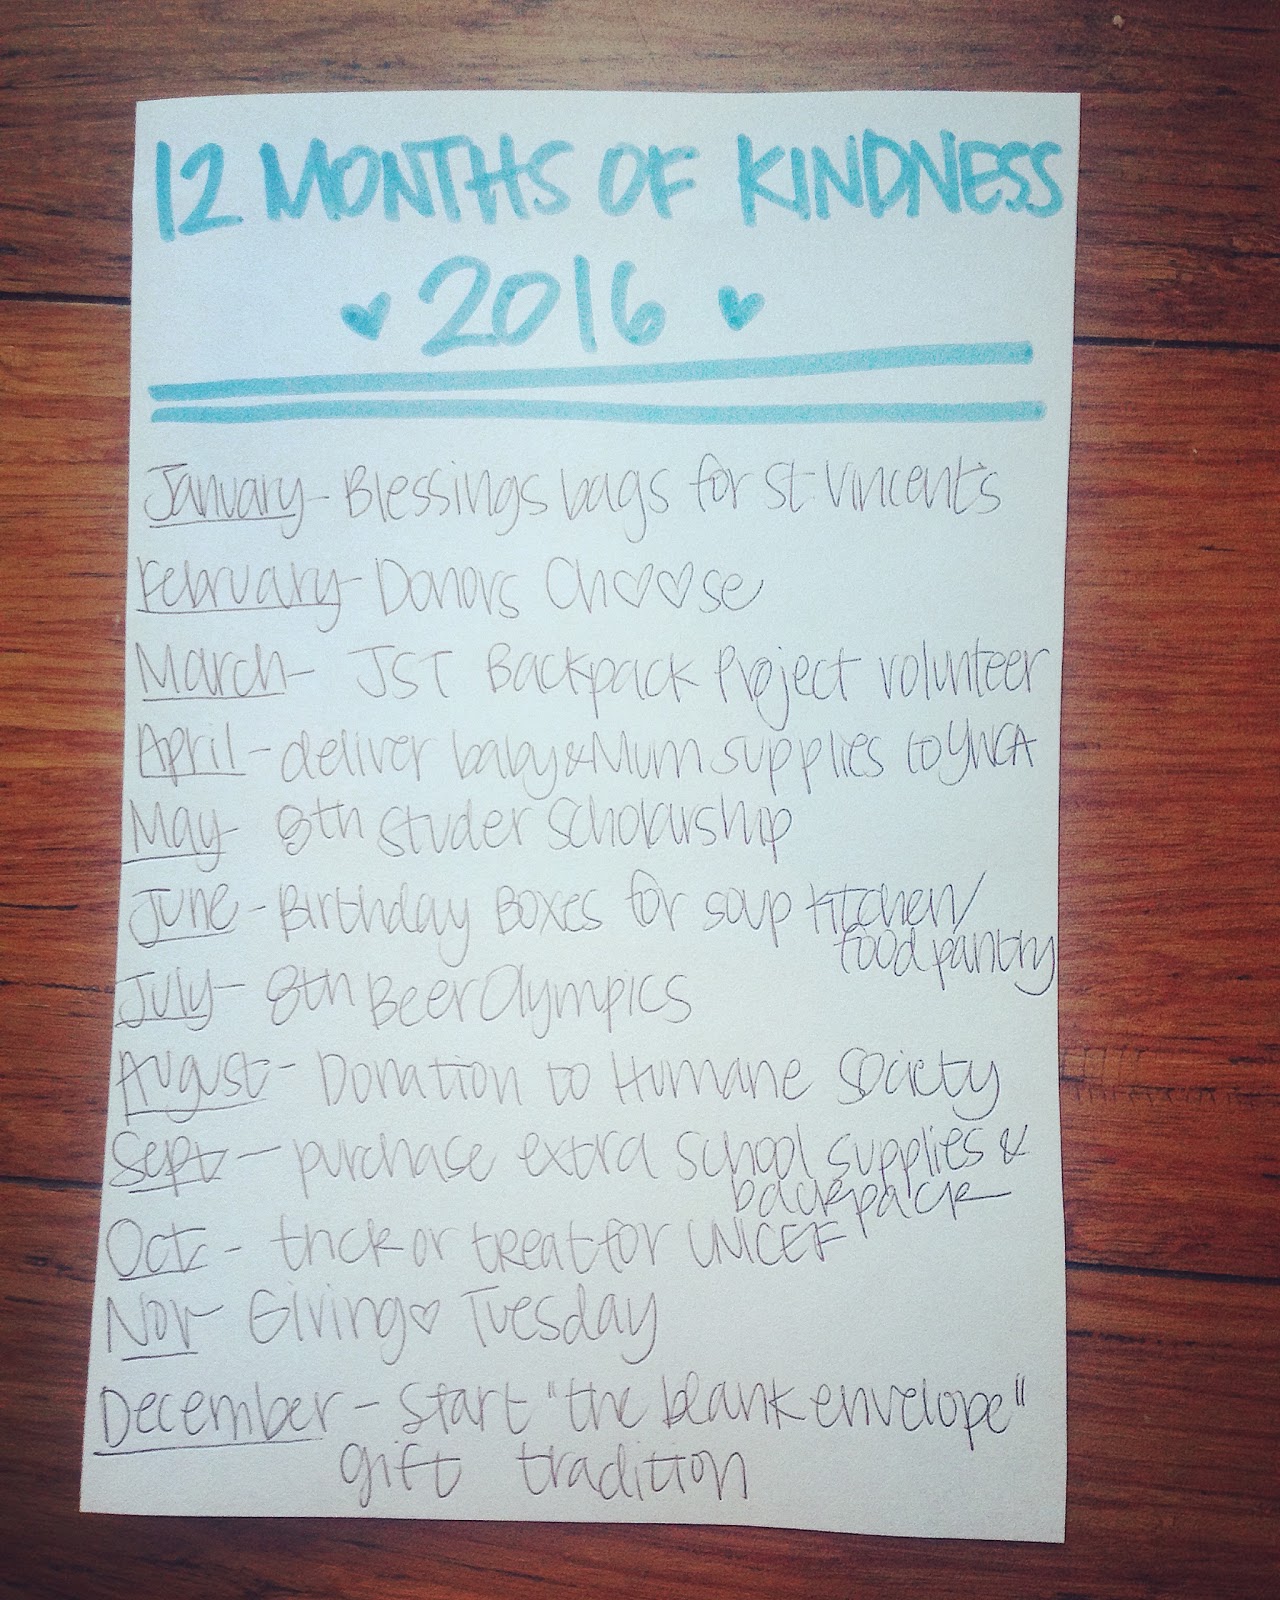 12 MONTHS OF KINDNESS
2016
January - Blessings bags for St Vincent's
February - Donors Ch♡♡se
March - JST Backpack Project volunteer
April - deliver baby & Mum supplies to YWCA
May - 8th Studer Scholarship
June - Birthday Boxes for soup kitchen/
food pantry
July - 8th Beer Olympics
August - Donation to Humane Society
Sept - purchase extra school supplies &
backpack
Oct - trick or treat for UNICEF
Nov - Giving♡ Tuesday
December - start "the blank envelope"
gift tradition